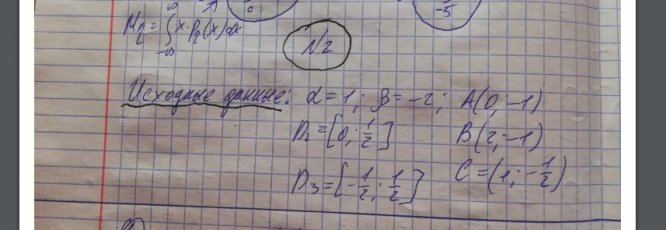 Mη = ∫ x·Pη(x)dx
∞
-∞
0
-5
N2
Исходные данные: α=1; β=-2; A(0;-1)
D₂=[0; 1/2] B(2;-1)
D₃=[-1/2; 1/2] C=(1;-1/2)